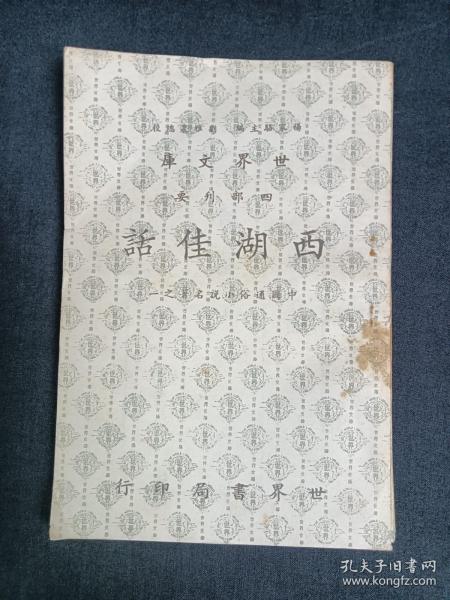 楊家駱主編 劉雅農總校
世界文庫
四部刊要
西湖佳話
中國通俗小說名著之一
世界書局印行
孔夫子旧书网
www.kongfz.com